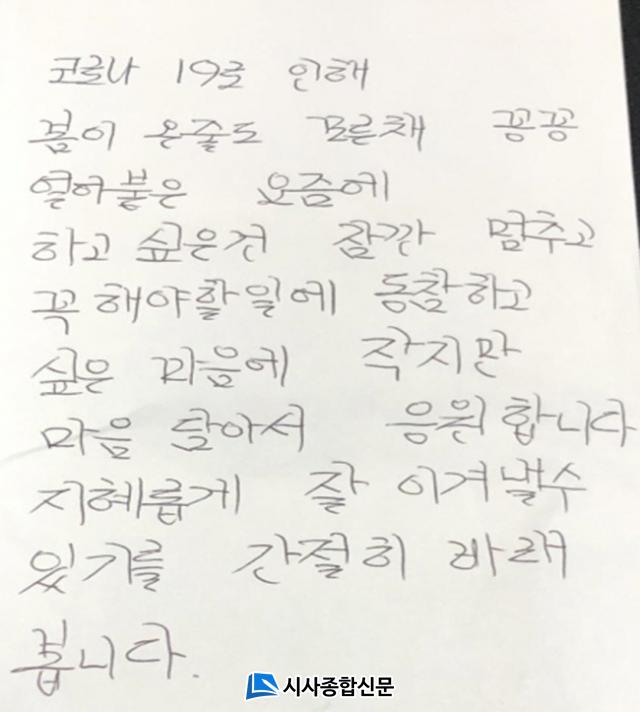 코로나 19로 인해
봄이 온줄도 모른채 꽁꽁
얼어붙은 요즘에
하고 싶은건 잠깐 멈추고
꼭 해야할일에 동참하고
싶은 마음에 작지만
마음 담아서 응원합니다
지혜롭게 잘 이겨낼수
있기를 간절히 바래
봅니다.
시사종합신문